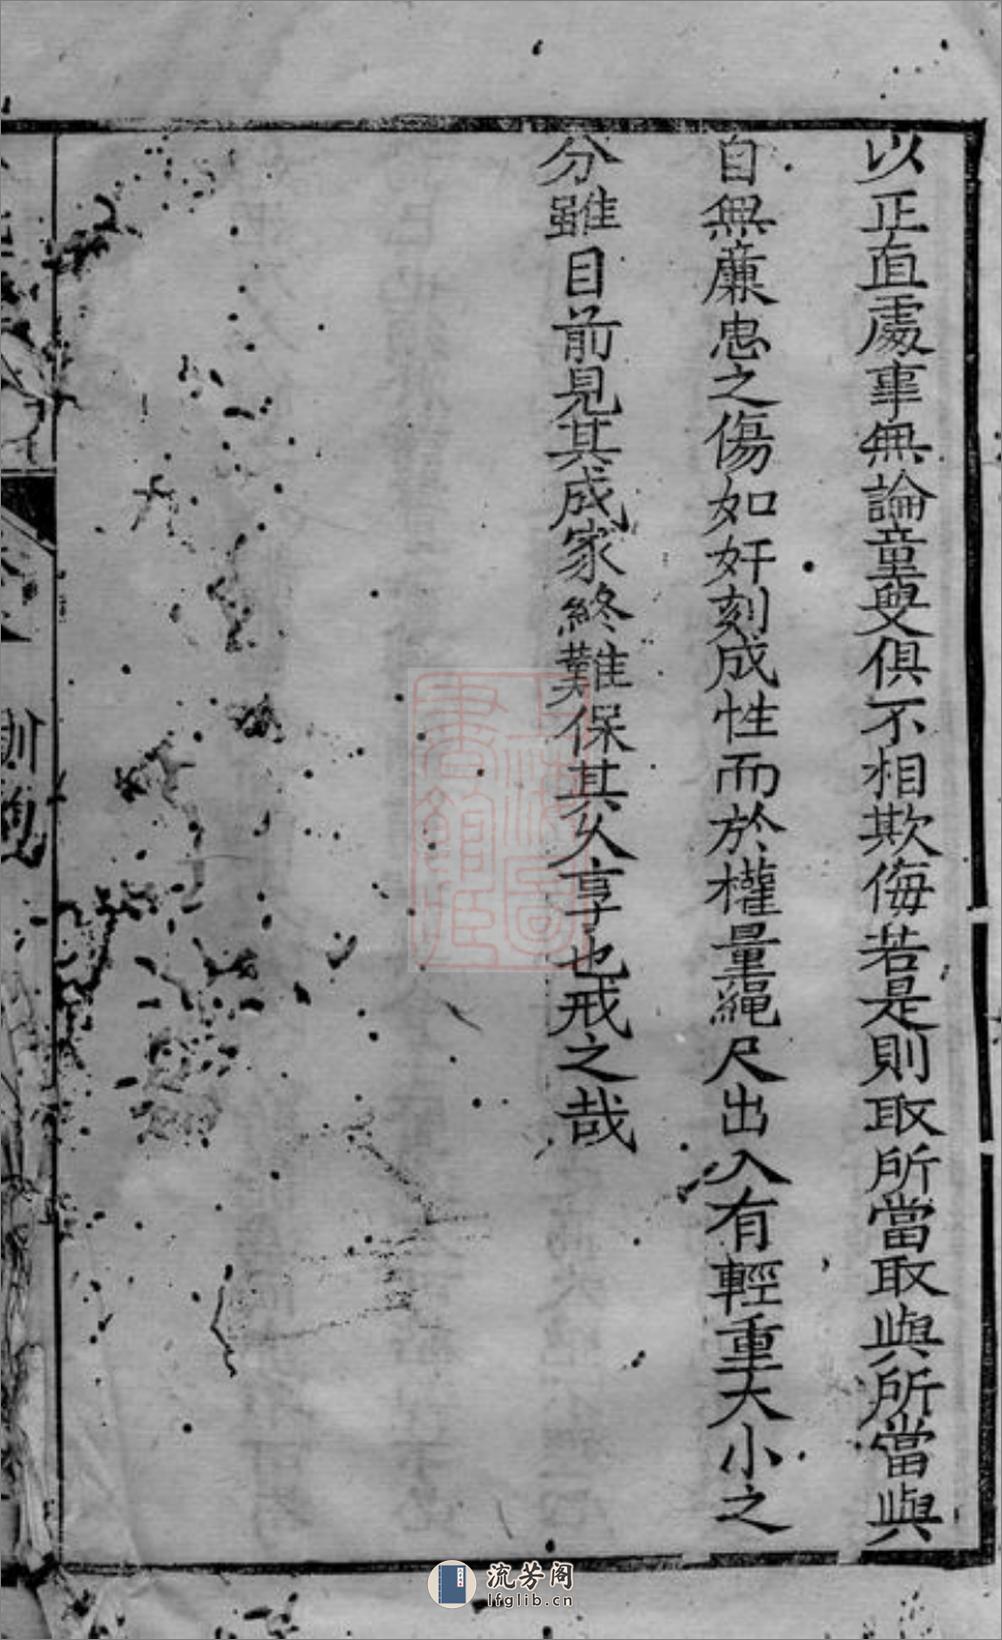 以正直處事無論童叟俱不相欺侮若是則取所當取與所當與
自無廉忠之傷如奸刻成性而於權量繩尺出入有輕重大小之
分雖目前見其成家終難保其久享也戒之哉
訓
流芳阁
lfglib.cn